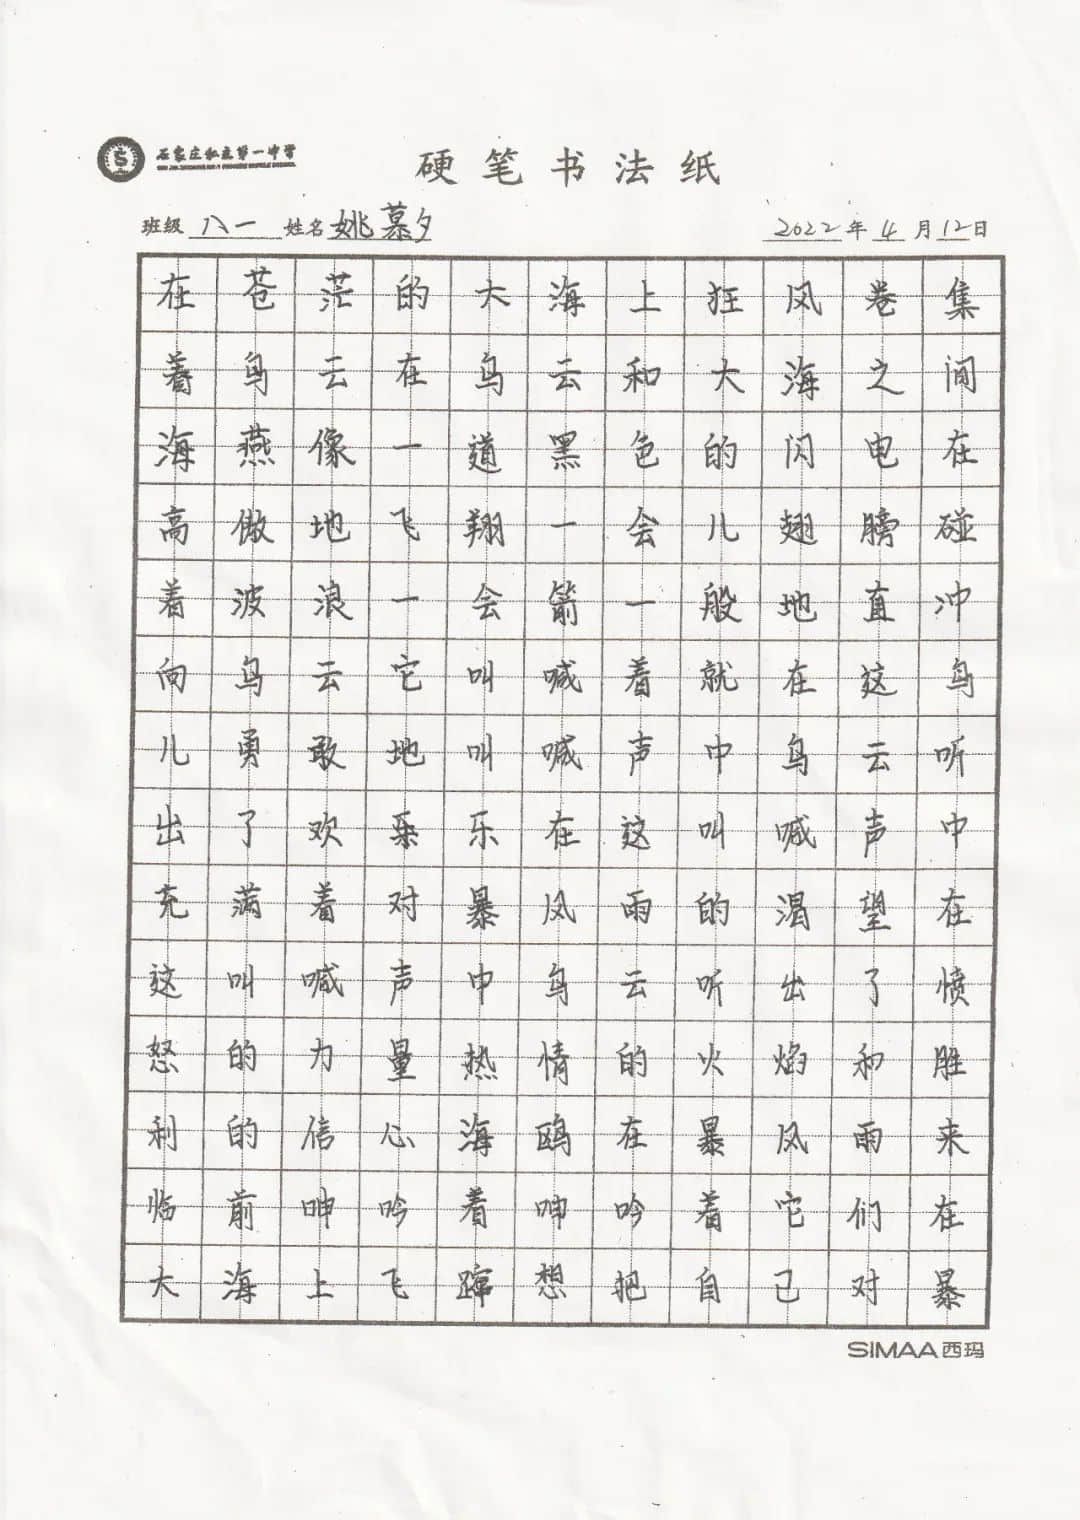 石家庄私立第一中学
硬笔书法纸
班级 八一 姓名 姚慕夕 2022 年 4 月 12 日
在苍茫的大海上狂风卷集
着乌云在乌云和大海之间
海燕像一道黑色的闪电在
高傲地飞翔一会儿翅膀碰
着波浪一会箭一般地直冲
向乌云它叫喊着就在这鸟
儿勇敢地叫喊声中乌云听
出了欢乐乐在这叫喊声中
充满着对暴风雨的渴望在
这叫喊声中乌云听出了愤
怒的力量热情的火焰和胜
利的信心海鸥在暴风雨来
临前呻吟着呻吟着它们在
大海上飞蹿想把自己对暴
SIMAA西玛